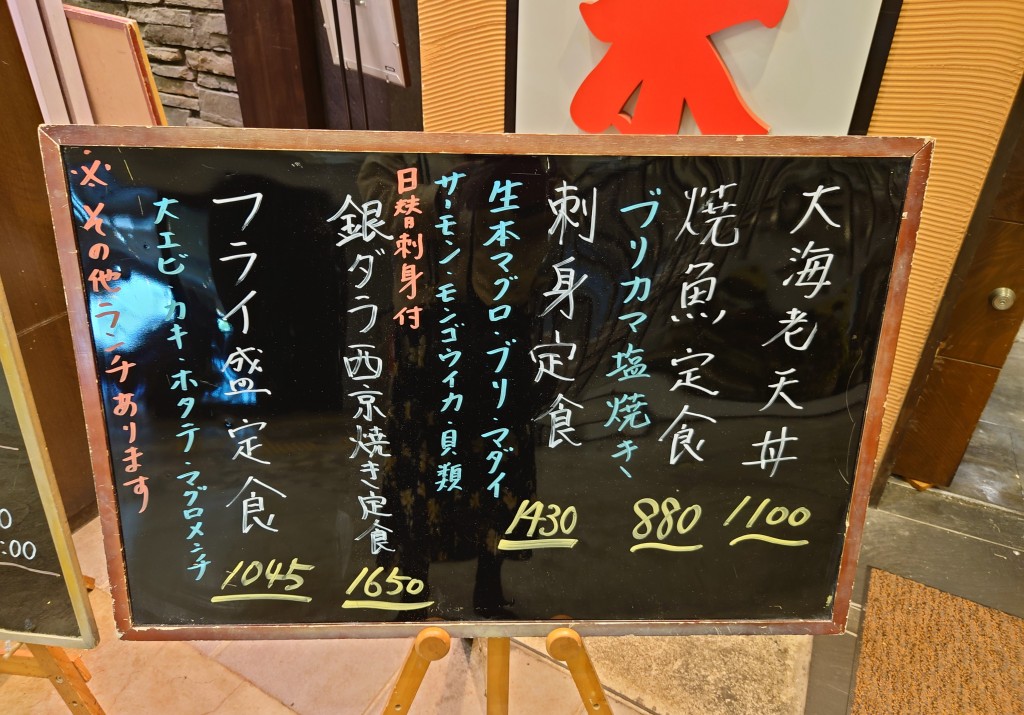 大海老天丼 1100
焼魚定食 880
ブリカマ塩焼き
刺身定食 1430
生本マグロ・ブリ・マダイ
サーモン・モンゴウイカ・貝類
日替刺身付
銀ダラ西京焼き定食 1650
フライ盛定食 1045
大エビ・カキ・ホタテ・マグロメンチ
※その他ランチあります
:00